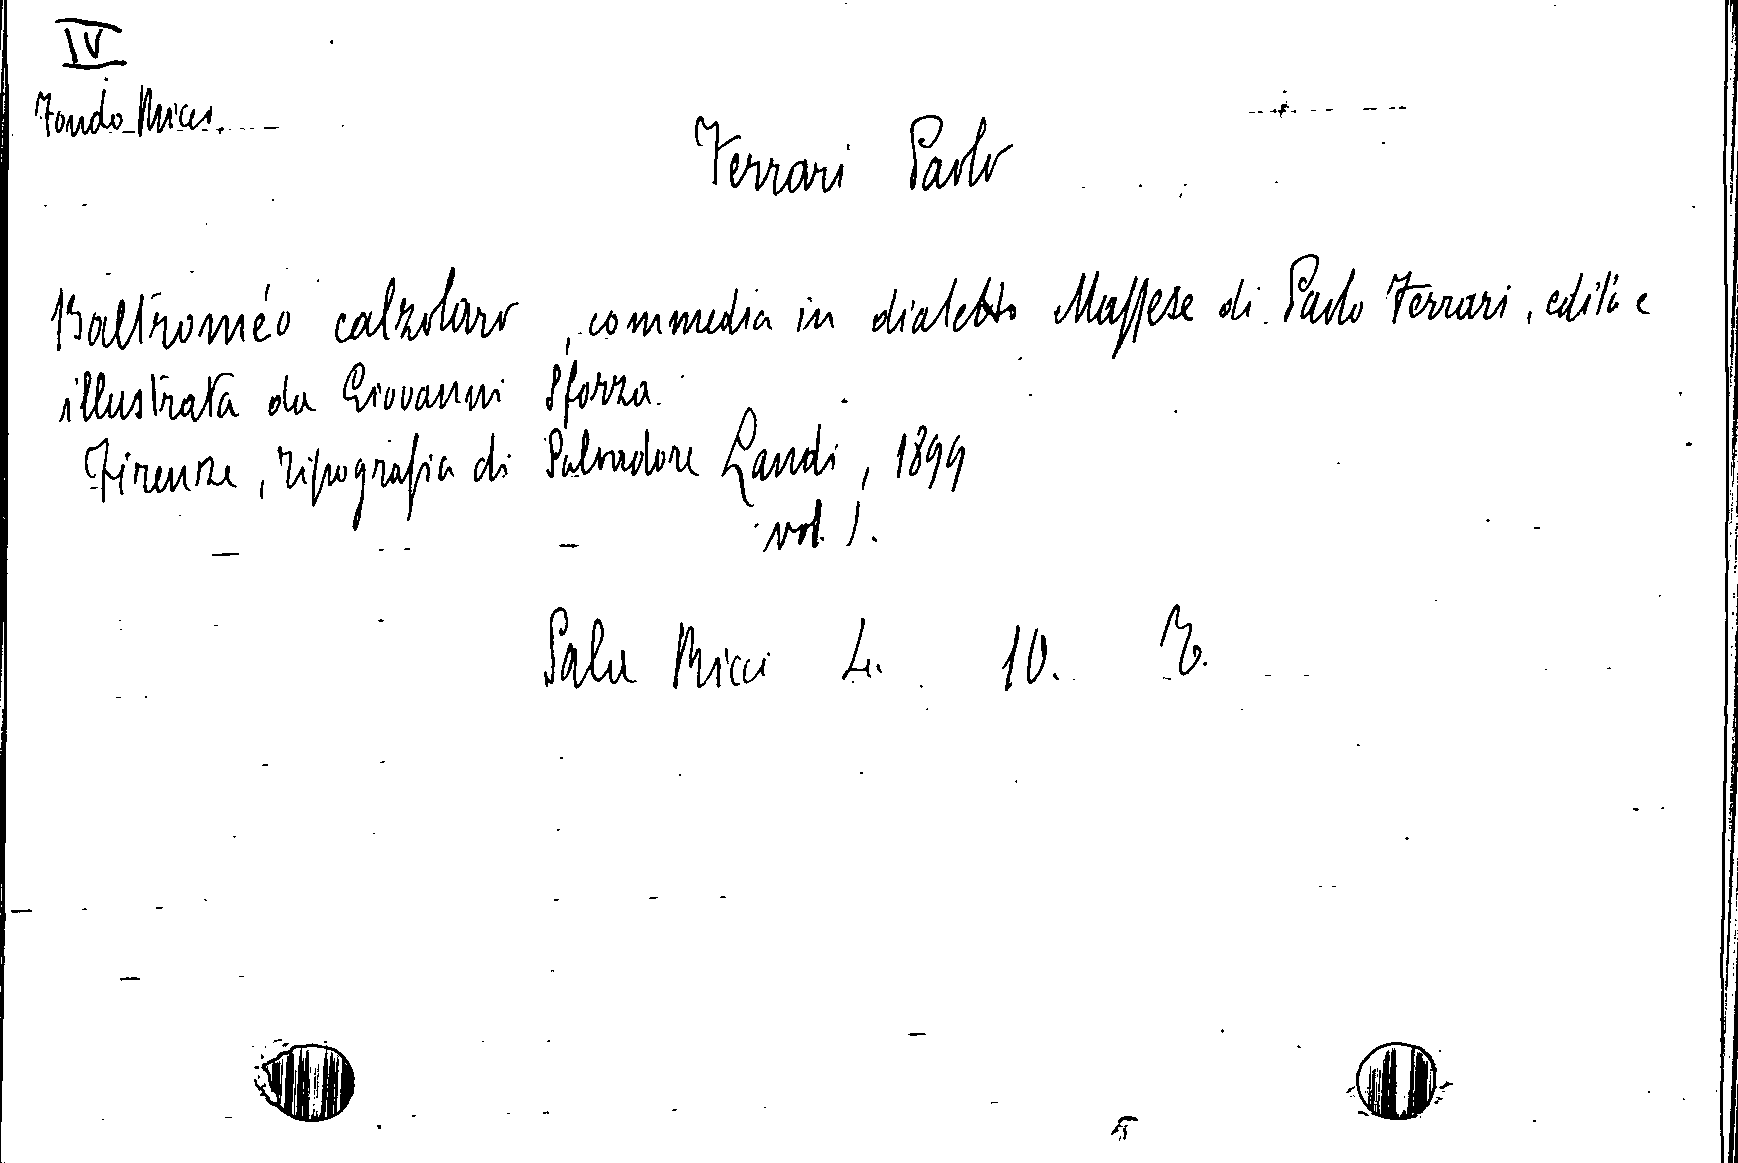 IV
Fondo Ricci
Ferrari Paolo
Baltroméo calzolaro, commedia in dialetto Massese di Paolo Ferrari, edita e
illustrata da Giovanni Sforza.
Firenze, tipografia di Salvadore Landi, 1899
vol. 1.
Sala Ricci L. 10.